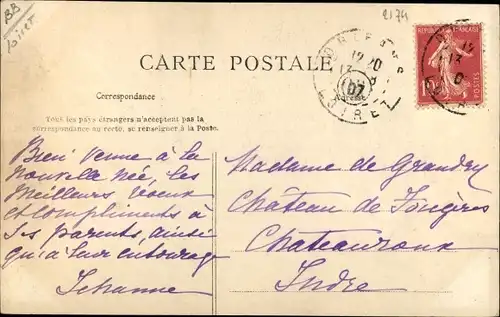 BB
Loiret
2174
CARTE POSTALE
Correspondance
Tous les pays étrangers n'acceptent pas la
correspondance au recto, se renseigner à la Poste.
REPUBLIQUE FRANÇAISE
10
POSTES
LOIRET
07
Bien venue à la
nouvelle née, les
meilleurs voeux
et compliments à
ses parents, ainsi
qu'à leur entourage
Jehanne
Madame de
Château de Fougères
Chateauroux
Indre